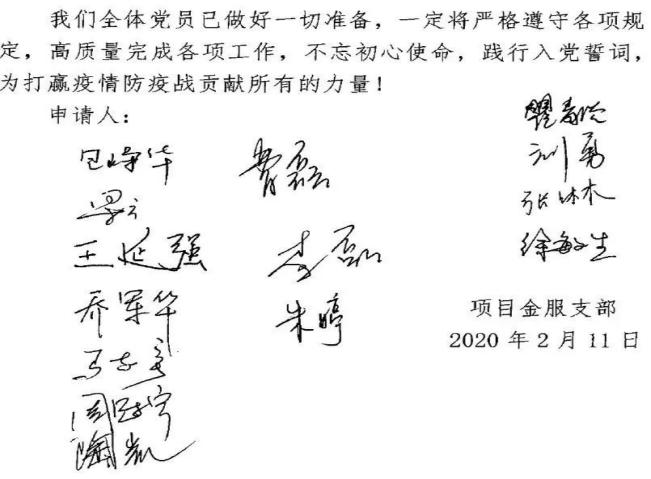 我们全体党员已做好一切准备，一定将严格遵守各项规
定，高质量完成各项工作，不忘初心使命，践行入党誓词，
为打赢疫情防疫战贡献所有的力量！
申请人：
包峰华
王延强
乔军华
陶凯
费磊
李磊
朱婷
刘勇
张林木
徐敏生
项目金服支部
2020 年 2 月 11 日